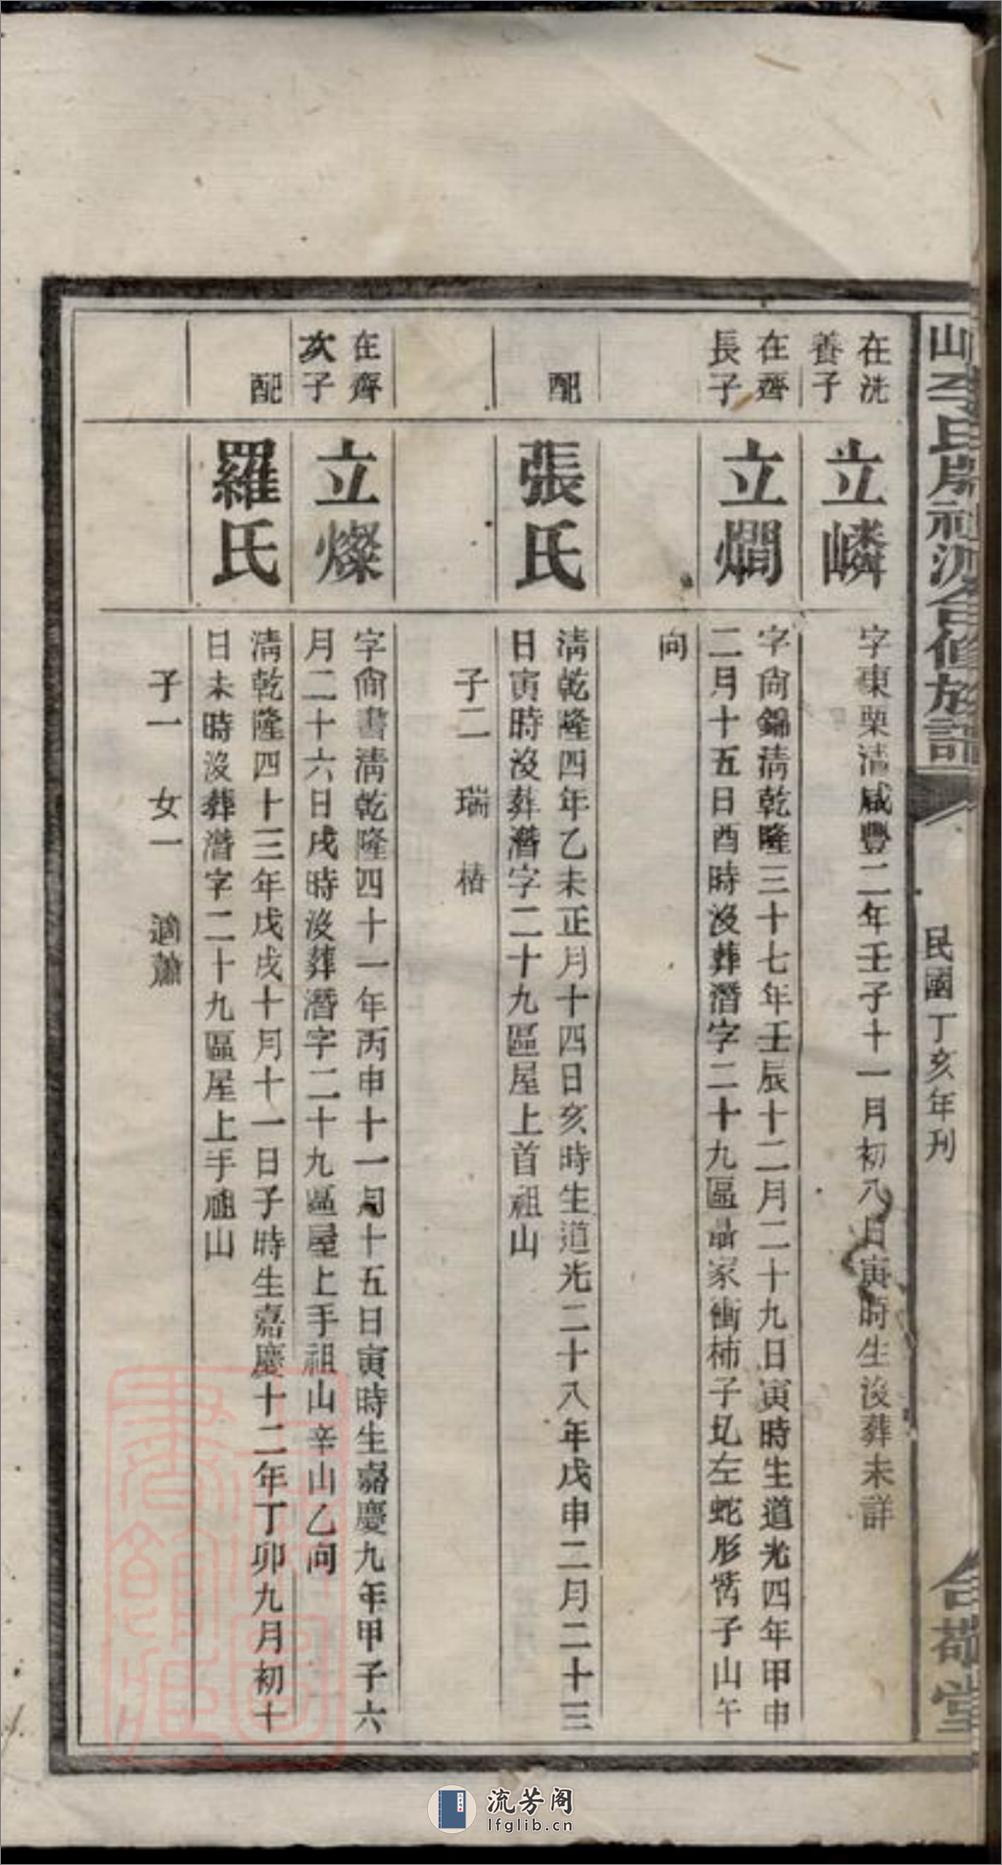 山李氏房祖派合修族譜
民國丁亥年刊
合敬堂
在洗
養子
立嶙
字東栗清咸豐二年壬子十一月初八日寅時生沒葬未詳
在齊
長子
立燗
字尙錦清乾隆三十七年壬辰十二月二十九日寅時生道光四年甲申
二月十五日酉時沒葬潛字二十九區聶家衝柿子圠左蛇形舊子山午
向
配
張氏
清乾隆四年乙未正月十四日亥時生道光二十八年戊申二月二十三
日寅時沒葬潛字二十九區屋上首祖山
子二 瑞 椿
在齊
次子
立燦
字尙書清乾隆四十一年丙申十一月十五日寅時生嘉慶九年甲子六
月二十六日戌時沒葬潛字二十九區屋上手祖山辛山乙向
配
羅氏
清乾隆四十三年戊戌十月十一日子時生嘉慶十二年丁卯九月初十
日未時沒葬潛字二十九區屋上手祖山
子一 女一 適蕭
流芳阁
lfglib.cn